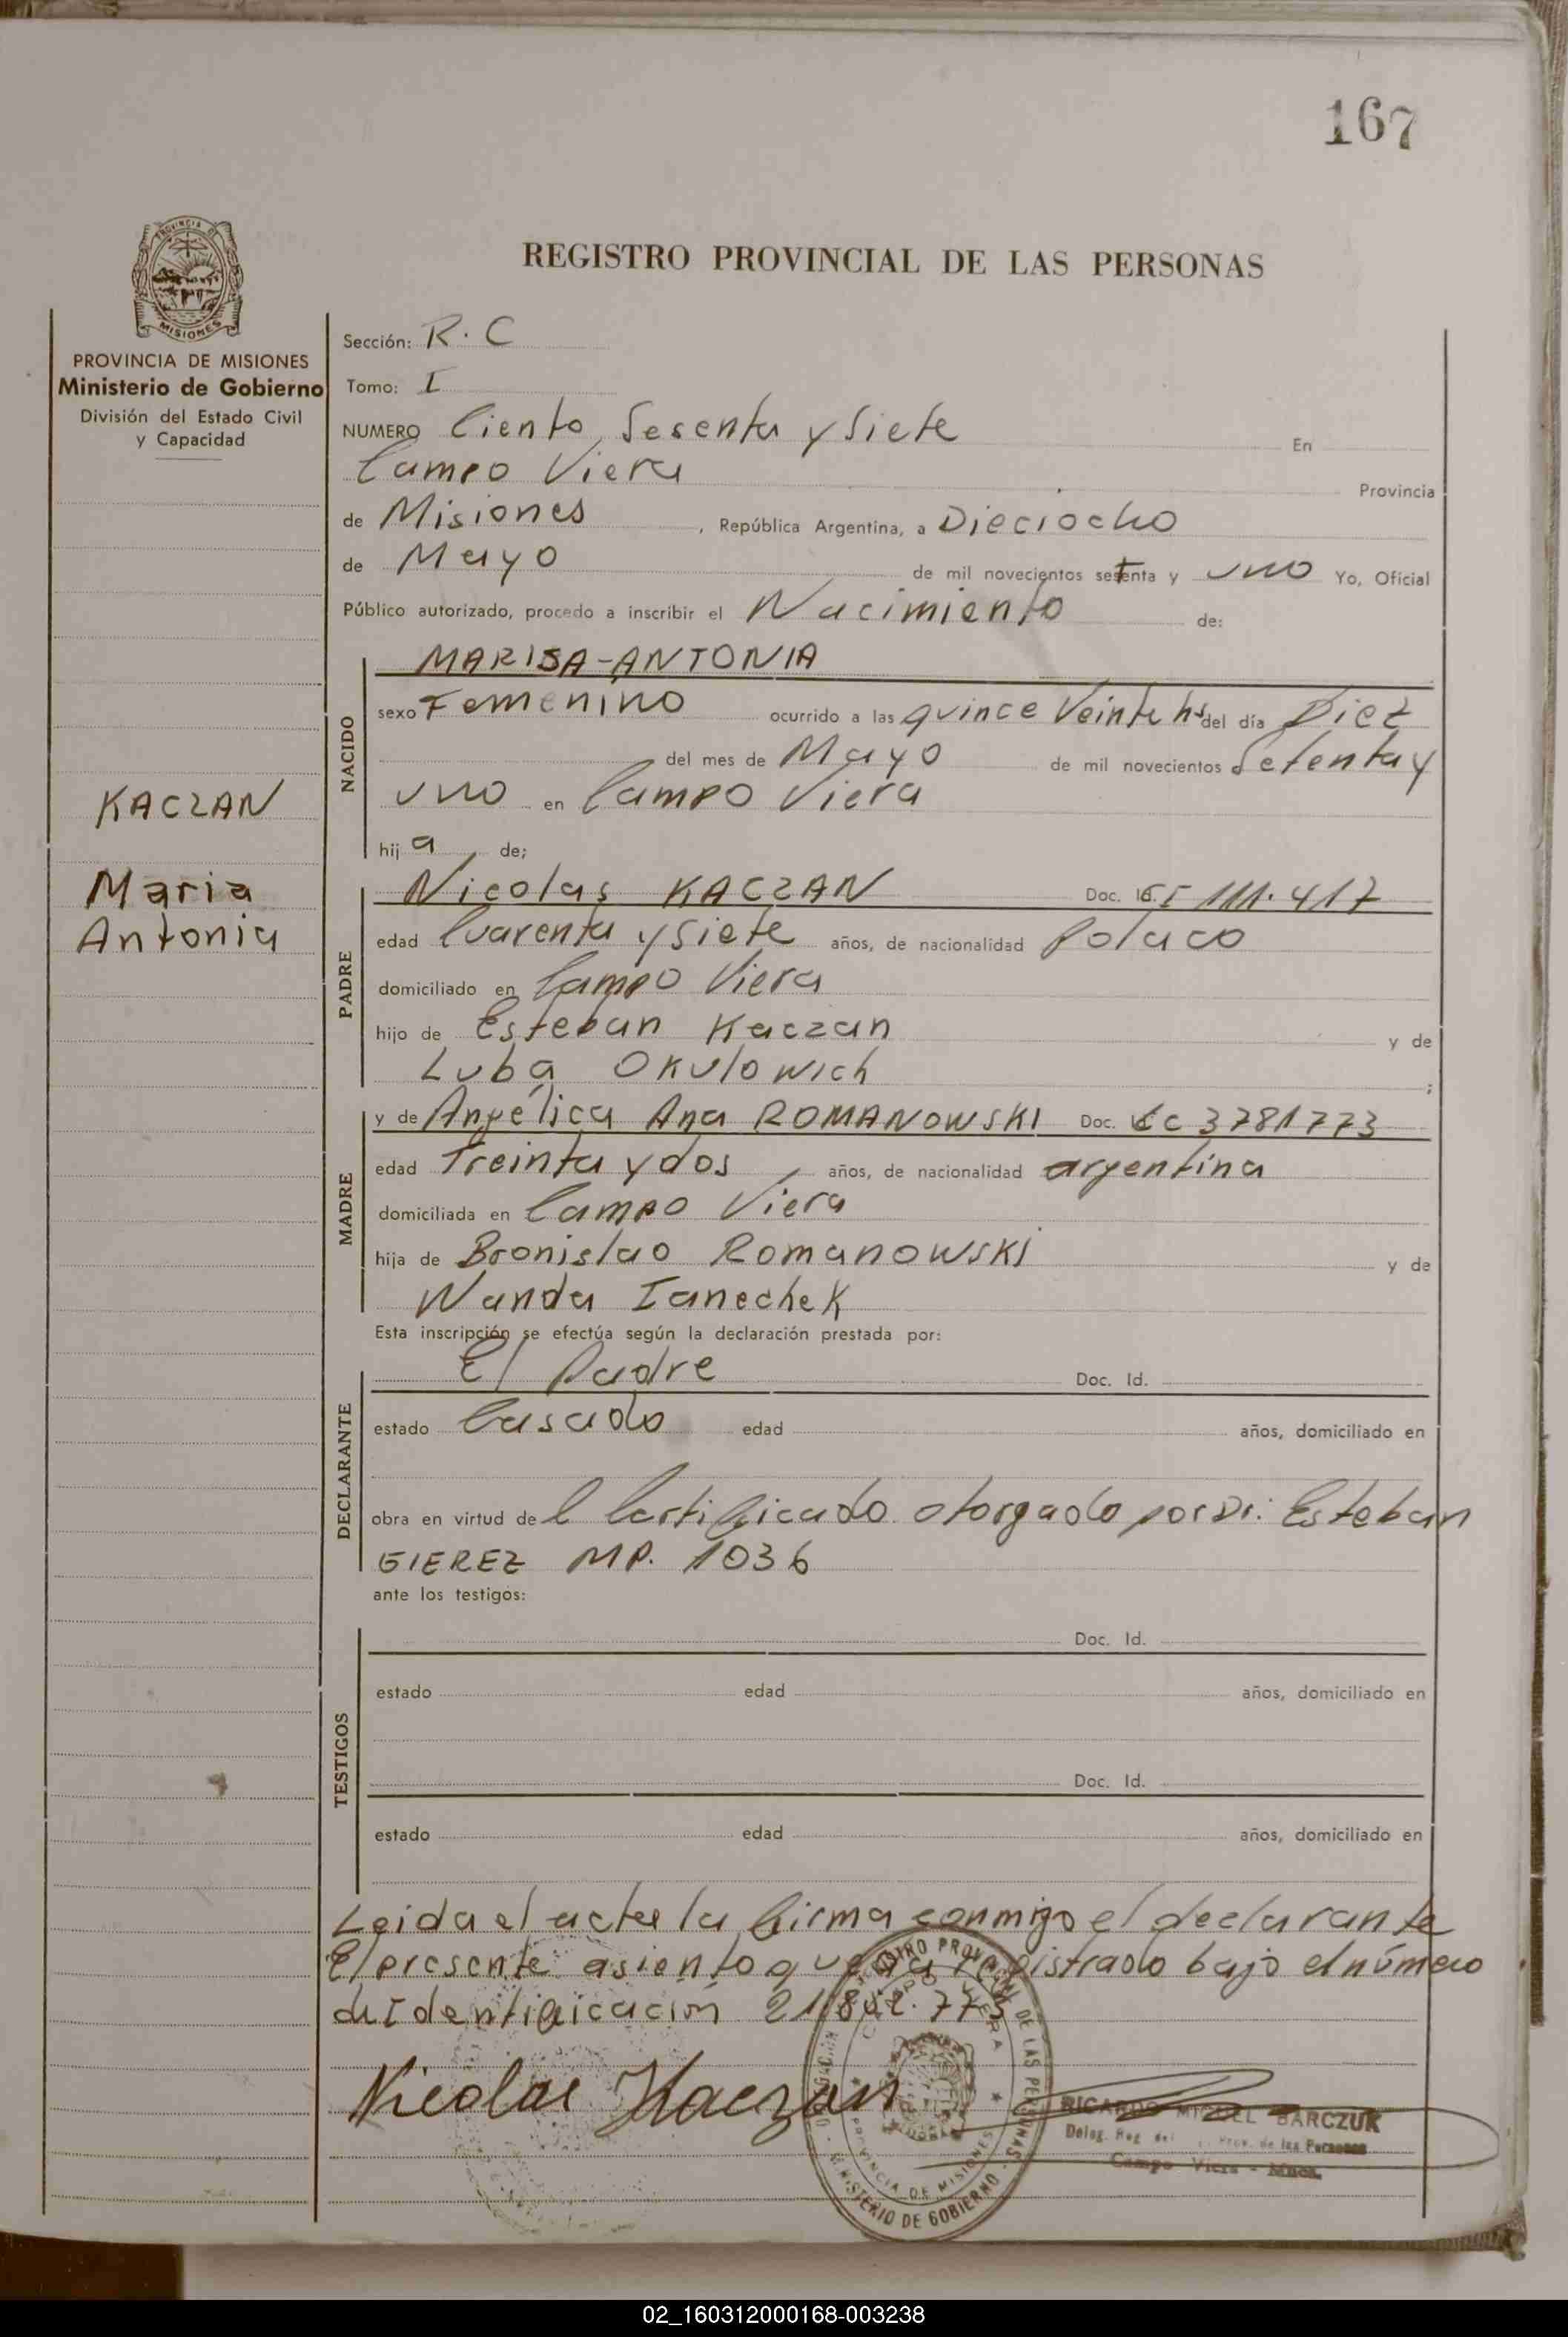 167
REGISTRO PROVINCIAL DE LAS PERSONAS
PROVINCIA DE MISIONES
Ministerio de Gobierno
División del Estado Civil
y Capacidad
KACZAN
Maria
Antonia
Sección: R. C
Tomo: I
NUMERO Ciento, Sesenta y Siete En
Campo Viera Provincia
de Misiones, República Argentina, a Dieciocho
de Mayo de mil novecientos setenta y uno Yo, Oficial
Público autorizado, procedo a inscribir el Nacimiento de:
NACIDO
MARISA-ANTONIA
sexo Femenino ocurrido a las quince Veinte hs del día Diez
del mes de Mayo de mil novecientos Setenta y
uno en Campo Viera
hija de;
PADRE
Nicolas KACZAN Doc. 111.417
edad Cuarenta y Siete años, de nacionalidad Polaco
domiciliado en Campo Viera
hijo de Esteban Kaczan y de
Luba Okulowich ;
MADRE
y de Angélica Ana ROMANOWSKI Doc. LC 3781773
edad Treinta y dos años, de nacionalidad argentina
domiciliada en Campo Viera
hija de Bronislao Romanowski y de
Wanda Ianechek
Esta inscripción se efectúa según la declaración prestada por:
DECLARANTE
El Padre Doc. Id.
estado Casado edad años, domiciliado en
obra en virtud del Certificado otorgado por Dr: Esteban
GIEREZ MP. 1036
ante los testigos:
TESTIGOS
Doc. Id.
estado edad años, domiciliado en
Doc. Id.
estado edad años, domiciliado en
Leida el acta la firma conmigo el declarante
El presente asiento queda registrado bajo el número
de Identificación 21.842.773
Nicolas Kaczan
REGISTRO PROVINCIAL DE LAS PERSONAS
CAMPO VIERA
PROVINCIA DE MISIONES
MINISTERIO DE GOBIERNO
RICARDO MIGUEL BARCZUK
Deleg. Reg. Prov. de las Personas
Campo Viera - Mnes.
02_160312000168-003238